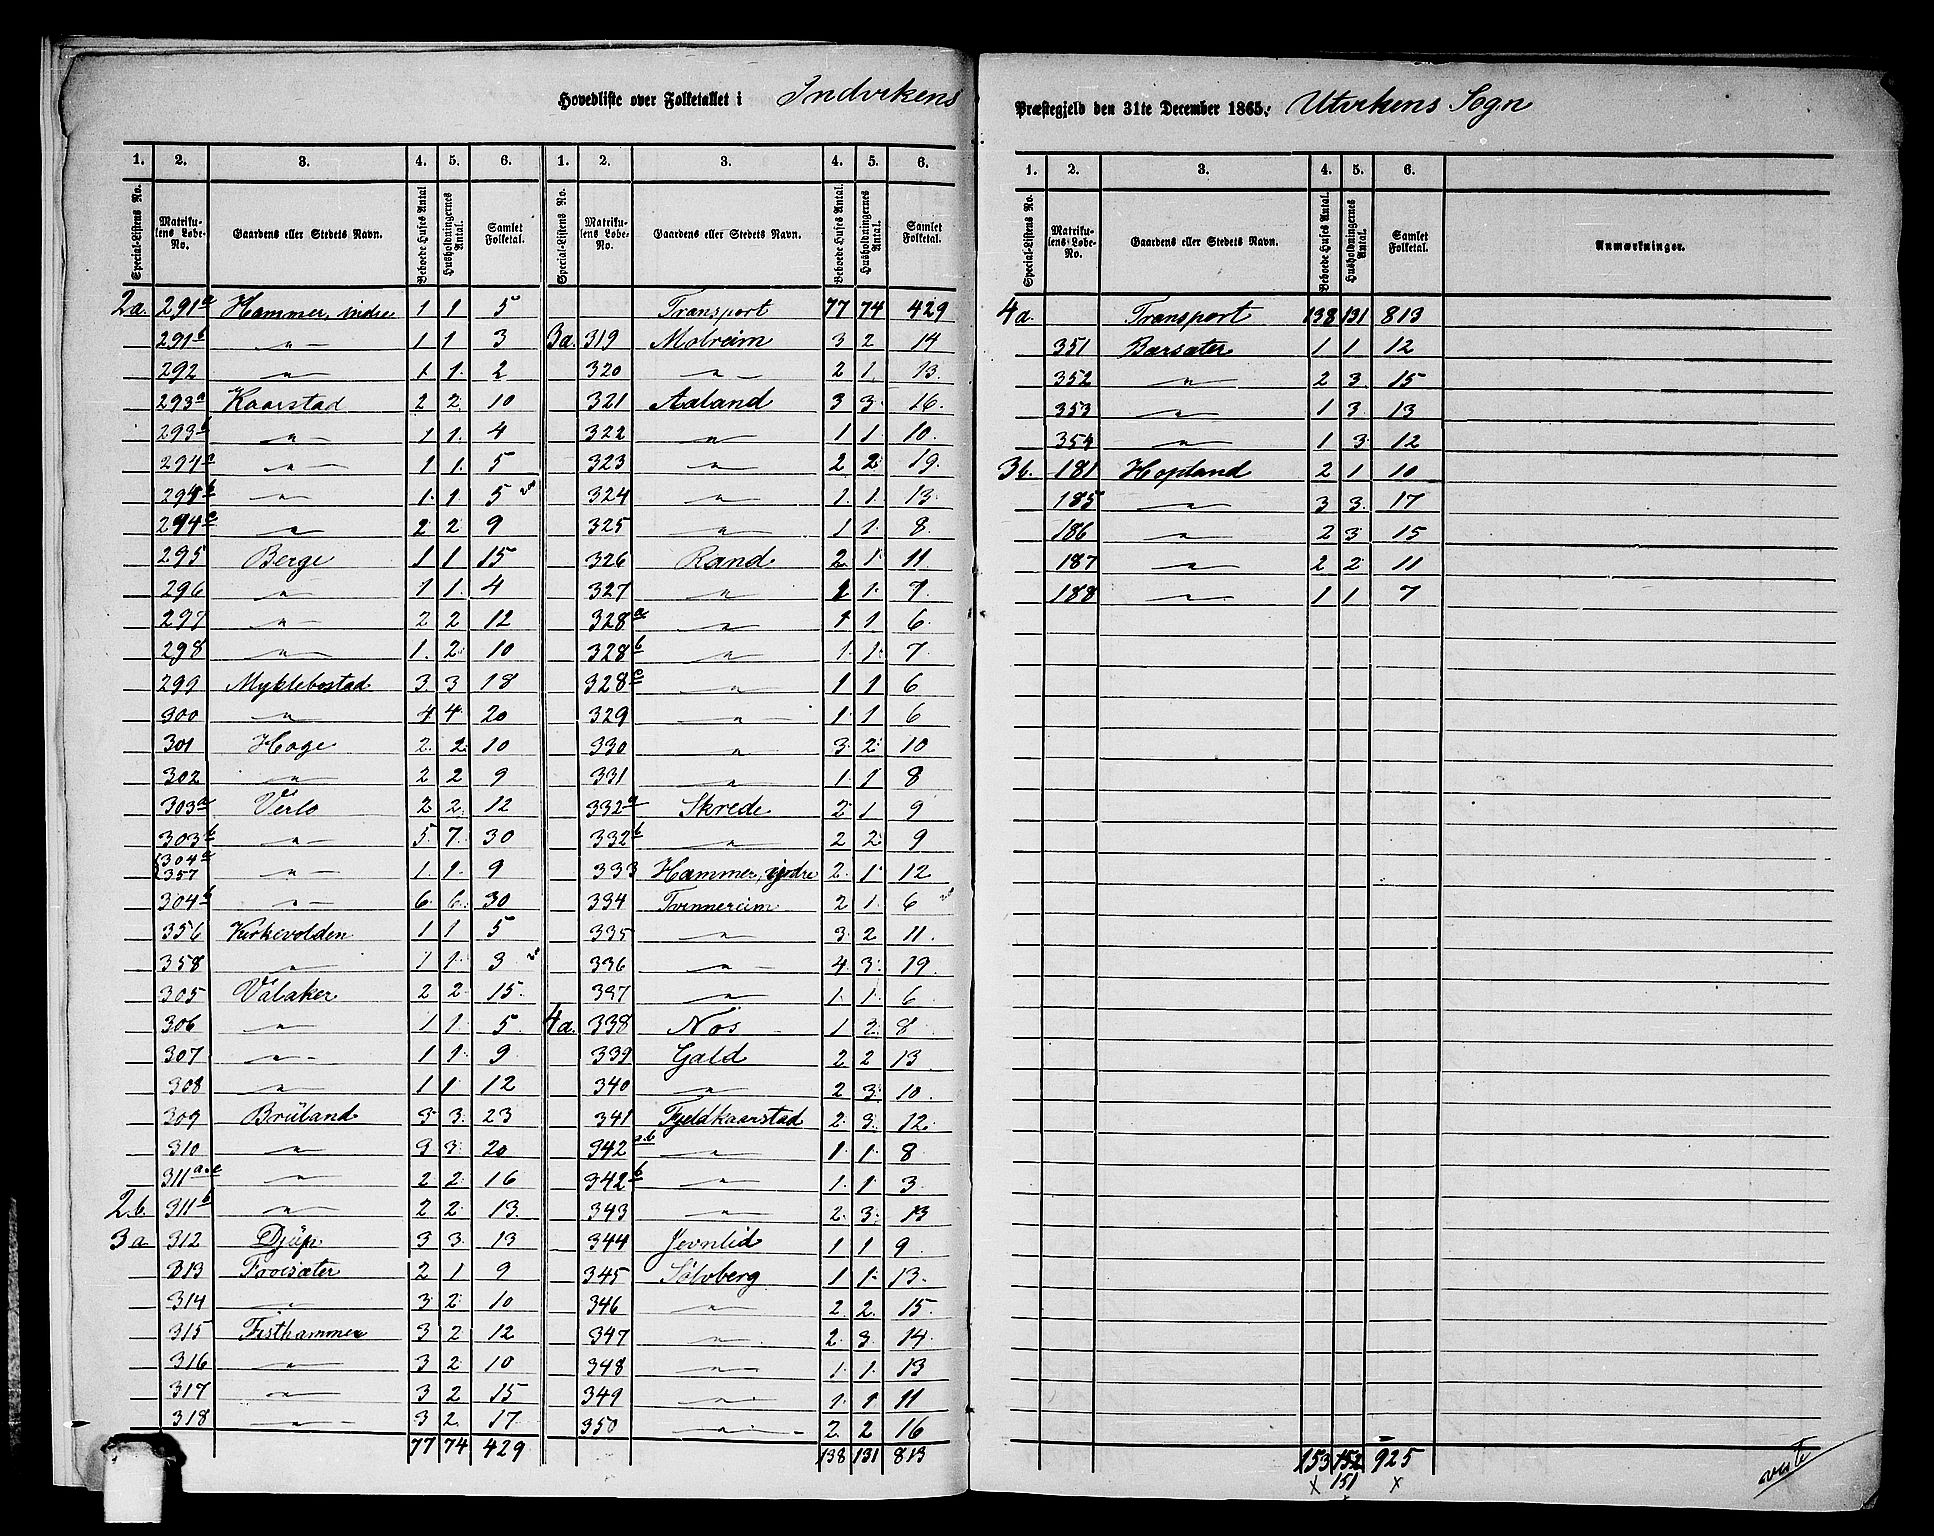 Hovedliste over Folketallet i Indvikens
1. 2. 3. 4. 5. 6. 1. 2. 3. 4. 5. 6.
Special-Listens No. Matrikulens Løbe-No. Gaardens eller Stedets Navn. Beboede Huses Antal Husholdningernes Antal. Samlet Folketal. Special-Listens No. Matrikulens Løbe-No. Gaardens eller Stedets Navn. Beboede Huses Antal. Husholdningernes Antal. Samlet Folketal.
2a. 291a Hammer, indre 1 1 5 Transport 77 74 429
291b " 1 1 3 3a. 319 Molreim 3 2 14
292 " 1 1. 2 320 " 2 1. 13.
293a Kaarstad 2 2. 10 321 Aaland 3 3. 16.
293b " 1 1. 4 322 " 1 1. 10.
294a " 1 1. 5 323 " 2 2. 19.
294b " 1. 1 5 324 " 1. 1. 13.
294c " 2 2 9 325 " 1 1. 8.
295 Berge 1 1 15 326 Rand 2. 1. 11.
296 " 1 1. 4 327 " 1 1. 7.
297 " 2 2 12 328a " 1 1 6.
298 " 1. 2. 10 328b " 1. 1. 7.
299 Myklebostad 3 3 18 328c " 1 1 6
300 " 4 4. 20 329 " 1. 1 6
301 Hage 2. 2. 10 330 " 3. 2. 10
302 " 2 2 9 331 " 1. 1 8
303a Verlo 2 2. 12 332a Skrede 2. 1 9
303b " 5. 7. 30 332b " 2 2. 9
304a 357 " 1. 1. 9 333 Hammer, ijndre 2. 1. 12
304b " 6. 6. 30 334 Tvinnereim 2 1. 6
356 Kirkevolden 1 1 5 335 " 3. 2 11.
358 " 1 1. 3 336 " 4. 3. 19.
305 Valaker 2 2. 15. 337 " 1. 1. 6
306 " 1 1. 5. 4a. 338 Nos 1 2. 8
307 " 1 1. 9 339 Gald 2 2 13
308 " 1 1. 12 340 " 2 3. 10.
309 Brüland 3 3. 23 341 Fjeldkaarstad 2. 3. 12.
310 " 3 3. 20 342a.b " 1. 1. 8
311a.c " 2 2. 16 342b " 1. 1 3.
2b. 311b " 2 2. 13 343 " 2. 3. 13
3a 312 Djüp 3 3. 13 344 Jevnlid 1 1 9.
313 Faaesæter 2 1 9 345 Sølvberg 1 1. 13.
314 " 3. 2. 10 346 " 2. 2. 15.
315 Fisthammer 3 2. 12 347 " 2. 3. 14.
316 " 3 2. 10 348 " 1. 1. 13
317 " 3 2 15 349 " 1. 1 11
318 " 3 2. 17. 350 " 2. 2 16
77 74 429 138 131 813
Præstegjeld den 31te December 1865; Utvikens Sogn
1. 2. 3. 4. 5. 6.
Special-Listens No. Matrikulens Løbe-No. Gaardens eller Stedets Navn. Beboede Huses Antal. Husholdningernes Antal. Samlet Folketal. Anmærkninger.
4a. Transport 138 131 813
351 Bærsæter 1 1 12
352 " 2 3. 15
353 " 1 3. 13
354 " 1 3. 12
3b. 181 Hopland 2 1 10
185 " 3 3. 17
186 " 2 3. 15
187 " 2 2. 11
188 " 1 1 7
153 152 925
x 151 x
x